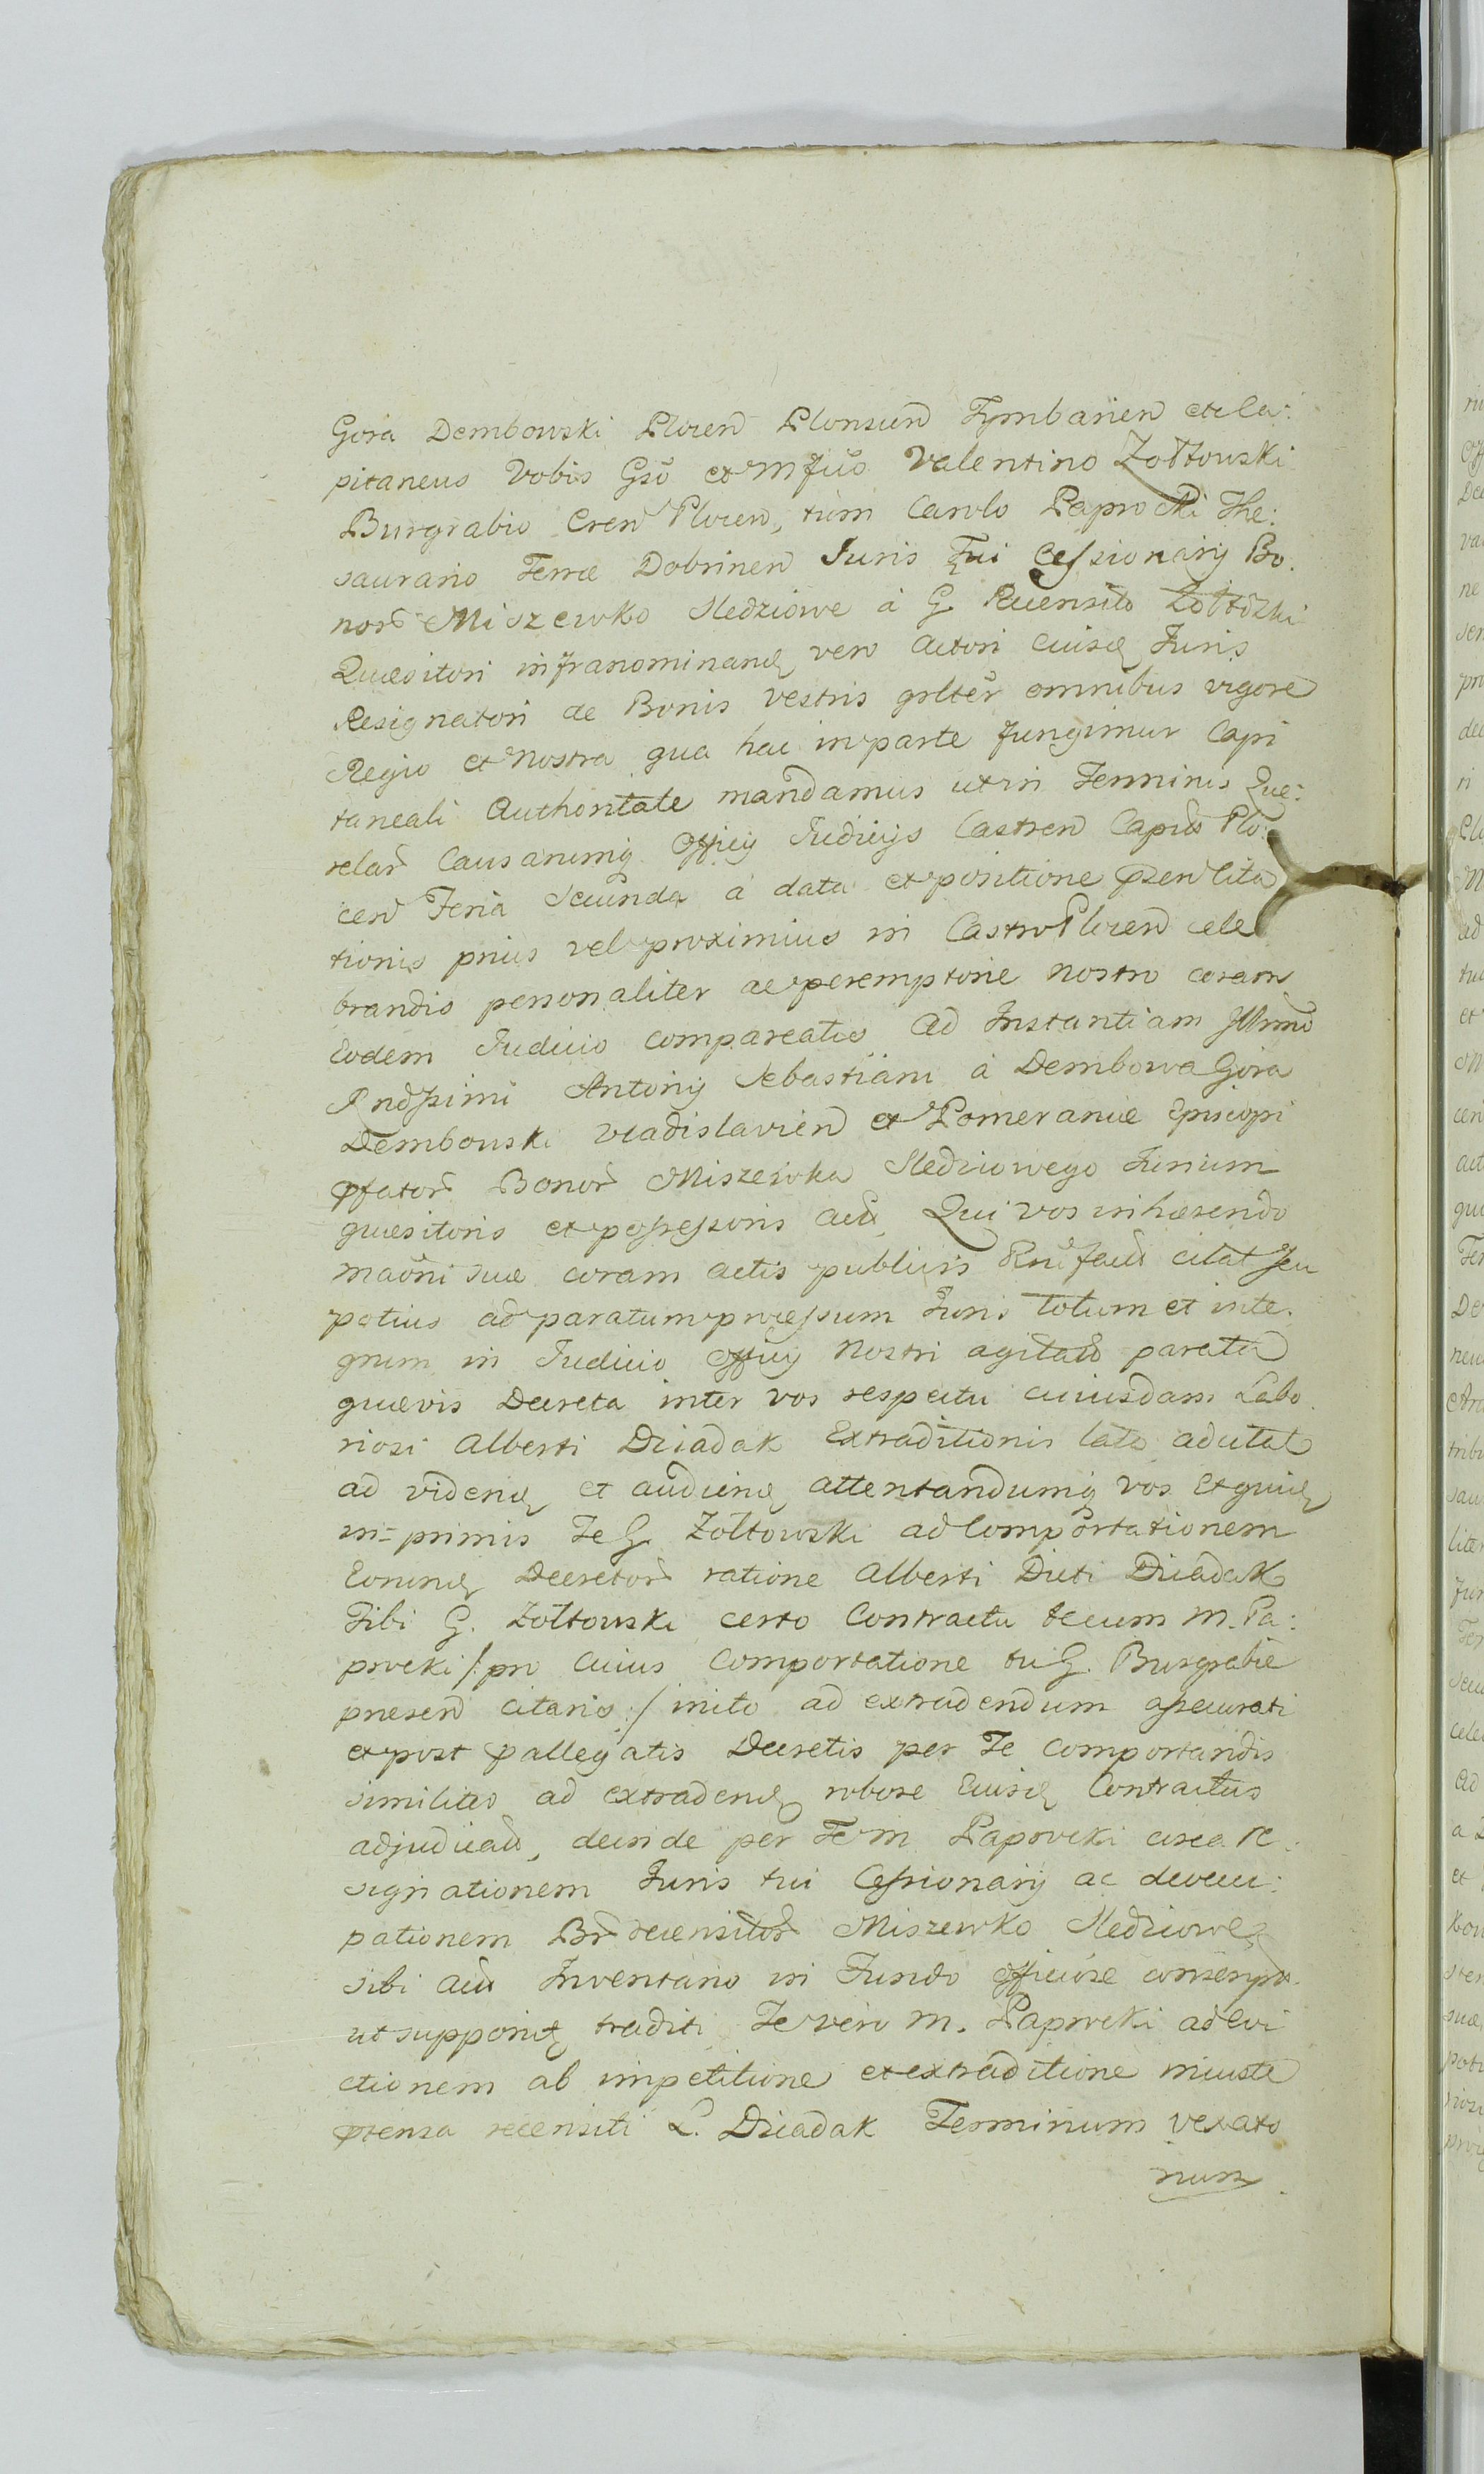 Gora Dembowski Plocen Plonscen Tymbarien etc Ca:
pitaneus Vobis Gso et Mfco Valentino Zołtowski
Burgrabio Cren Plocen, tum Carolo Paprocki The:
saurario Terræ Dobrinen Juris Tui Cessionarij Bo.
nor Miszewko Sledziowe à G. Recensito Zołtowski
Quæsitori infranominand vero Actori eiusd Juris
Resignatori de Bonis vestris grlter omnibus vigore
Regio et Nostra qua hac in parte fungimur Capi
taneali Authoritate mandamus ut in Terminis Que:
relar Causarumq Officij Judicijs Castren Captis Plo:
cen Feria Secunda à data et positione præsen Cita
tionis prius vel proximius in Castro Plocen cele
brandis personaliter ac peremptorie nostro coram
Eodem Judicio compareatis Ad Instantiam Illrmi
Rndssimi Antonij Sebastiani à Dembowa Gora
Dembowski Vladislavien et Pomeraniæ Episcopi
præfator Bonor Miszewka Sledziowego Jurium
quæsitoris et possessoris act. Qui vos inhærendo
maoni suæ coram actis publicis Rni fact citat seu
potius ad paratum processum Juris totum et inte.
grum in Judicio Officij Nostri agitatu parata
quævis Decreta inter vos respectu cuiusdam Labo.
riosi Alberti Dziadak Extraditionis lata adcitat
ad vidend et audiend attentandumq vos Et quid
in primis Te G. Zołtowski ad Comportationem
Eorund Decretor ratione Alberti Dicti Dziadak
Tibi G. Zołtowski certo Contractu tecum M. Pa:
procki /: pro cuius Comportatione tu G. Burgrabie
præsen citaris :/ inito ad extradendum assecurati
et post præallegatis Decretis per Te comportandis
similiter ad extradend robore Eiusd Contractus
adjudicati, deinde per Te M Paprocki circa Re:
signationem Juris tui Cessionarij ac deoccu:
pationem Br recensitor Miszewko Sledziowe
sibi act Inventario in Fundo officiose conscripto
ut supponit traditi Te vero M. Paprocki ad Evi
ctionem ab impetitione et extraditione iniuste
prætensa recensiti L. Dziadak Terminum vexato
rium